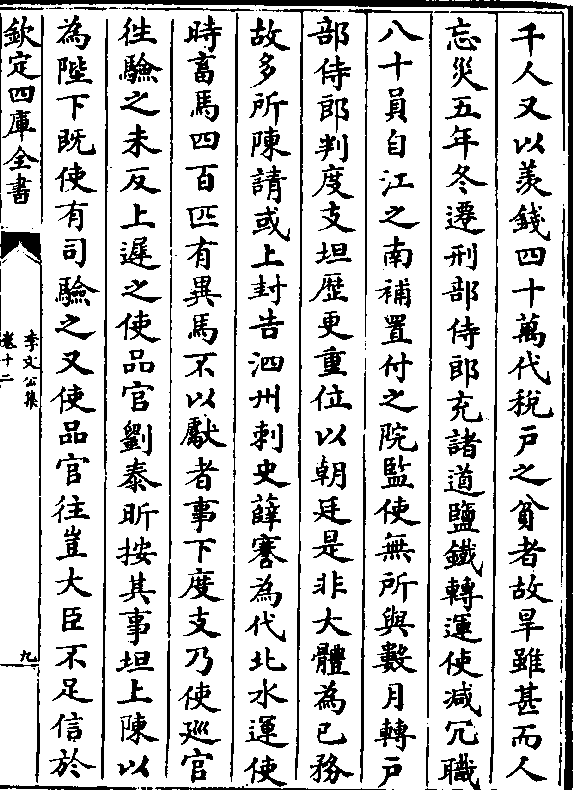 千人又以羨錢四十萬代稅戸之貧者故旱雖甚而人
忘災五年冬遷刑部侍郎充諸道鹽鐵轉運使减冗職
八十員自江之南補置付之院監使無所與數月轉戸
部侍郎判度支坦歴更重位以朝廷是非大體為已務
故多所陳請或上封告泗州刺史薛謇為代北水運使
時畜馬四百匹有異馬不以獻者事下度支乃使廵官
徃驗之未反上遲之使品官劉泰昕按其事坦上陳以
為陛下既使有司驗之又使品官往豈大臣不足信於
欽定四庫全書
李文公集
卷十二
九